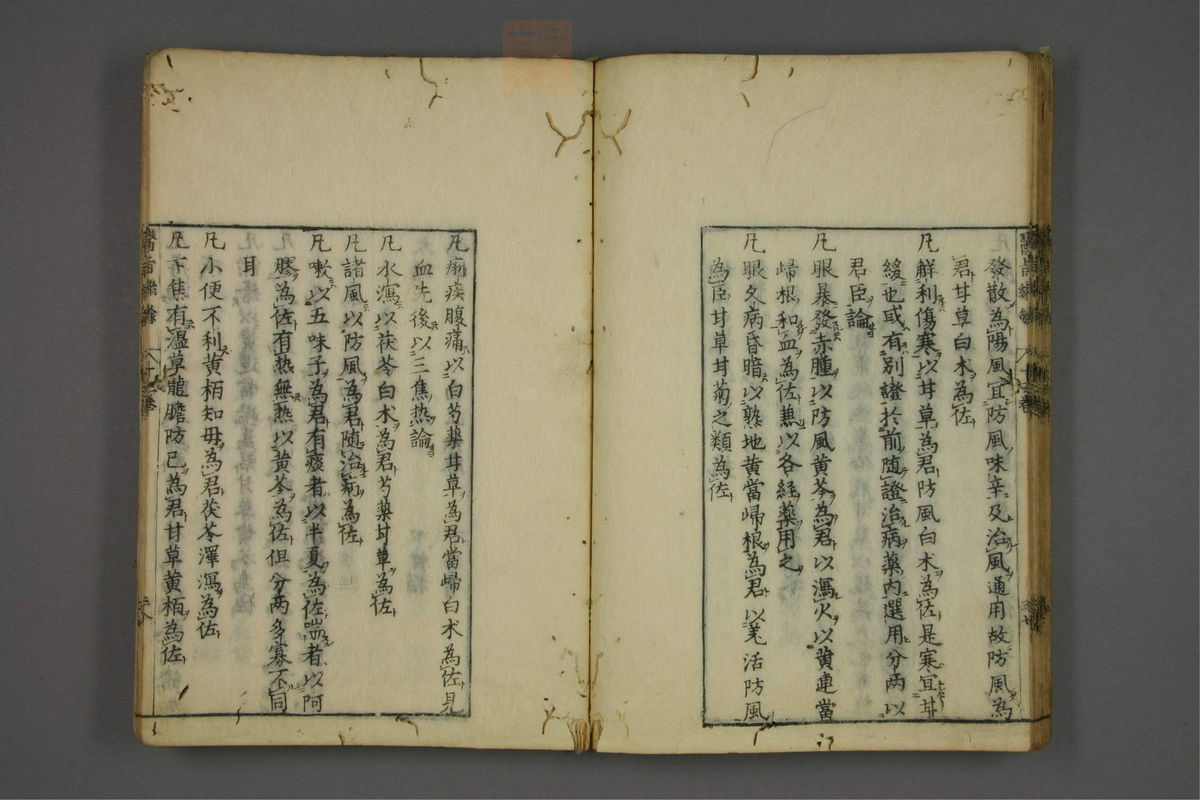 發散為陽風宜防風味辛及治風通用故防風為
君甘草白朮為佐
凡解利傷寒以甘草為君防風白朮為佐是寒宜甘
緩也或有別證於前随證治病薬内選用分兩以
君臣論
凡眼暴發赤腫以防風黄芩為君以瀉火以黄連當
歸根和血為佐兼以各経薬用之
凡眼久病昏暗以熟地黄當歸根為君以羌活防風
為臣甘草甘菊之類為佐
凡痢疾腹痛以白芍薬甘草為君當歸白朮為佐見
血先後以三焦热論
凡水瀉以茯苓白朮為君芍薬甘草為佐
凡諸風以防風為君随治病為佐
凡嗽以五味子為君有痰者以半夏為佐喘者以阿
膠為佐有热無热以黄芩為佐但分两多寡不同
耳
凡小便不利黄栢知母為君茯苓澤瀉為佐
凡下焦有濕草龍膽防己為君甘草黄栢為佐